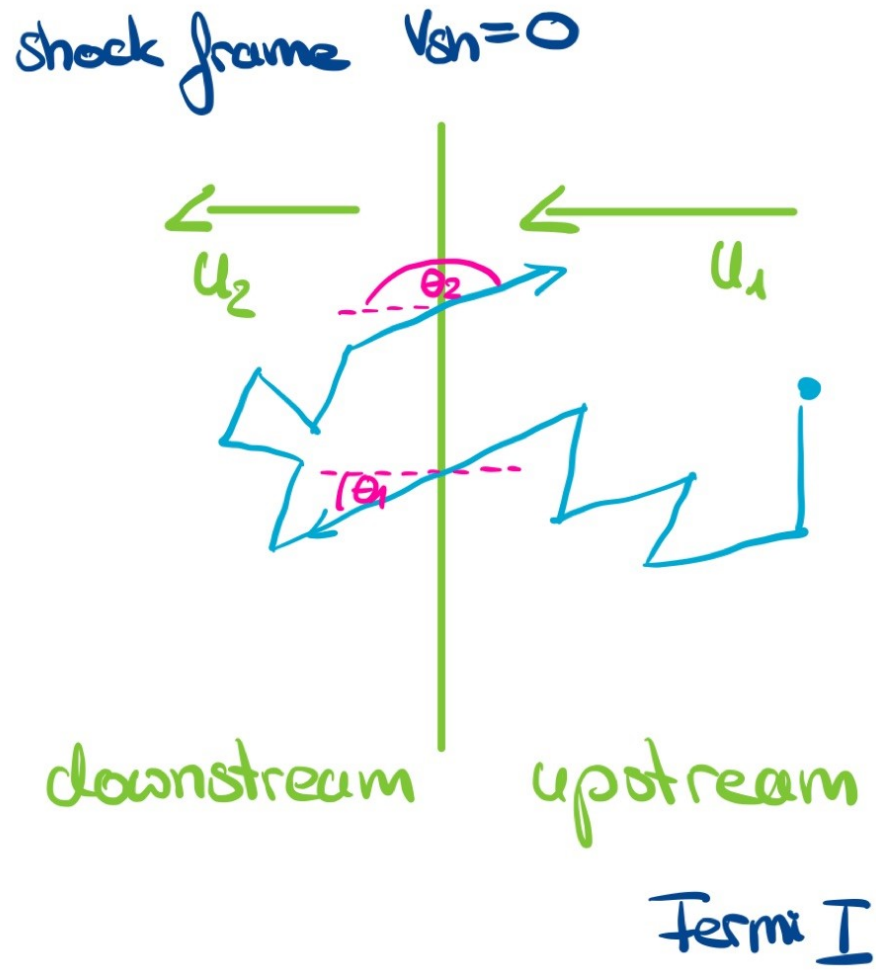 shock frame Vsh=0
u2 u1
θ2
θ1
downstream upstream
Fermi I